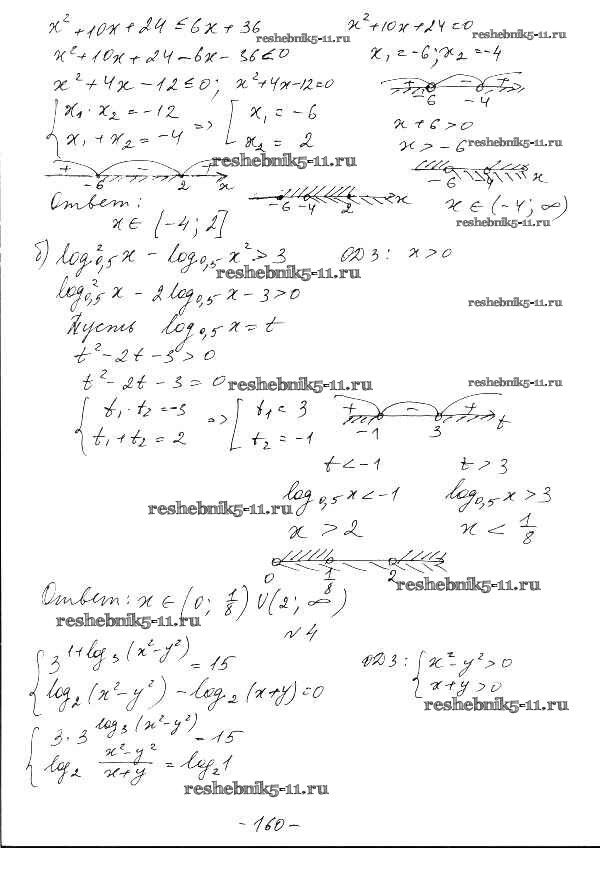 x² + 10x + 24 ≤ 6x + 36
x² + 10x + 24 = 0
reshebnik5-11.ru
reshebnik5-11.ru
x² + 10x + 24 - 6x - 36 ≤ 0
x₁ = -6; x₂ = -4
x² + 4x - 12 ≤ 0; x² + 4x - 12 = 0
+ - +
-6 -4
{ x₁ · x₂ = -12 => [ x₁ = -6
x₁ + x₂ = -4 x₂ = 2
x + 6 > 0
x > -6
reshebnik5-11.ru
reshebnik5-11.ru
+ - +
-6 2 x
-6 -4 x
Ответ:
-6 -4 2 x
x ∈ (-4; ∞)
x ∈ (-4; 2]
reshebnik5-11.ru
б) log²₀,₅ x - log₀,₅ x² > 3 ОДЗ: x > 0
reshebnik5-11.ru
log²₀,₅ x - 2 log₀,₅ x - 3 > 0
reshebnik5-11.ru
Пусть log₀,₅ x = t
t² - 2t - 3 > 0
t² - 2t - 3 = 0
reshebnik5-11.ru
reshebnik5-11.ru
{ t₁ · t₂ = -3 => [ t₁ = 3
t₁ + t₂ = 2 t₂ = -1
+ - +
-1 3 t
t < -1 t > 3
log₀,₅ x < -1 log₀,₅ x > 3
reshebnik5-11.ru
x > 2 x < 1/8
0 1/8 2
reshebnik5-11.ru
Ответ: x ∈ (0; 1/8) U (2; ∞)
reshebnik5-11.ru
№ 4
{ 3^(1+log₃(x²-y²)) = 15
log₂(x²-y²) - log₂(x+y) = 0
ОДЗ: { x² - y² > 0
x + y > 0
reshebnik5-11.ru
{ 3 · 3^(log₃(x²-y²)) = 15
log₂ (x²-y²)/(x+y) = log₂ 1
reshebnik5-11.ru
- 160 -